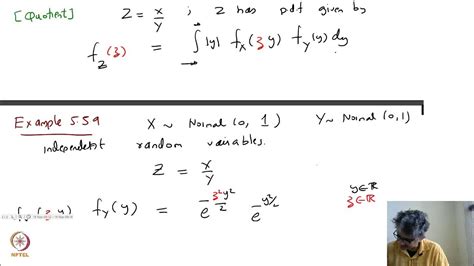 [Quotient] Z = X/Y ; Z has pdf given by
f_Z(z) = ∫ |y| f_X(z y) f_Y(y) dy
Example 5.5.9 X ~ Normal(0, 1) Y ~ Normal(0,1)
independent random variables.
Z = X/Y
f_X(z y) f_Y(y) = e^{-z²y²/2} e^{-y²/2} y∈ℝ
z∈ℝ
NPTEL